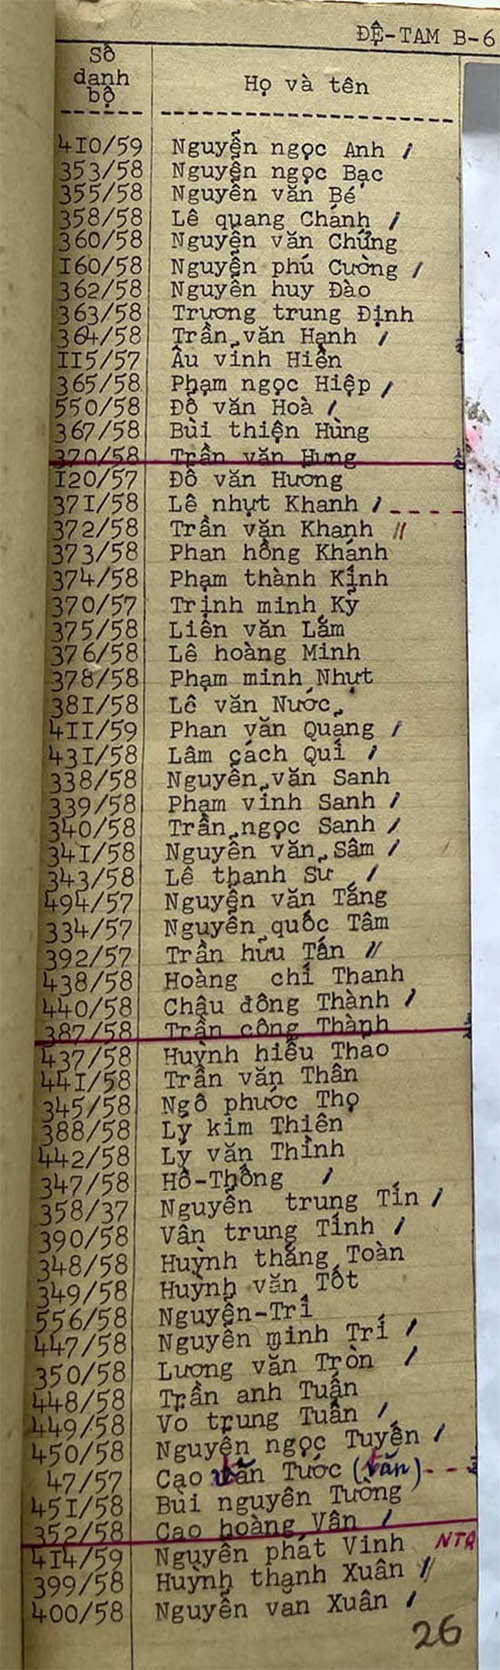 ĐỆ-TAM B-6
Số danh bộ Họ và tên
410/59 Nguyễn ngọc Anh /
353/58 Nguyễn ngọc Bạc
355/58 Nguyễn văn Bé
358/58 Lê quang Chánh /
360/58 Nguyễn văn Chững
160/58 Nguyễn phú Cường /
362/58 Nguyễn huy Đào
363/58 Trương trung Định
364/58 Trần văn Hạnh /
115/57 Âu vĩnh Hiển
365/58 Phạm ngọc Hiệp /
550/58 Đỗ văn Hoà /
367/58 Bùi thiện Hùng
370/58 Trần văn Hưng
120/57 Đỗ văn Hương
371/58 Lê nhựt Khanh /
372/58 Trần văn Khanh //
373/58 Phan hồng Khánh
374/58 Phạm thành Kỉnh
370/57 Trịnh minh Kỳ
375/58 Liên văn Lắm
376/58 Lê hoàng Minh
378/58 Phạm minh Nhựt
381/58 Lê văn Nước
411/59 Phan văn Quang /
431/58 Lâm cách Quí /
338/58 Nguyễn văn Sanh
339/58 Phạm vĩnh Sanh /
340/58 Trần ngọc Sanh /
341/58 Nguyễn văn Sâm /
343/58 Lê thanh Sư /
494/57 Nguyễn văn Tăng
334/57 Nguyễn quốc Tâm
392/57 Trần hữu Tấn //
438/58 Hoàng chí Thanh
440/58 Châu đông Thành /
387/58 Trần công Thành
437/58 Huỳnh hiếu Thảo
441/58 Trần văn Thân
345/58 Ngô phước Thọ
388/58 Lý kim Thiên
442/58 Lý văn Thình
347/58 Hồ-Thống /
358/37 Nguyễn trung Tín /
390/58 Văn trung Tính /
348/58 Huỳnh thắng Toàn
349/58 Huỳnh văn Tốt
556/58 Nguyễn-Tri
447/58 Nguyễn minh Trí /
350/58 Lương văn Tròn /
448/58 Trần anh Tuấn
449/58 Võ trung Tuấn /
450/58 Nguyễn ngọc Tuyền /
47/57 Cao văn Tước (văn)
451/58 Bùi nguyên Tường
352/58 Cao hoàng Vân /
414/59 Nguyễn phát Vinh NTQ
399/58 Huỳnh thanh Xuân //
400/58 Nguyễn văn Xuân /
26